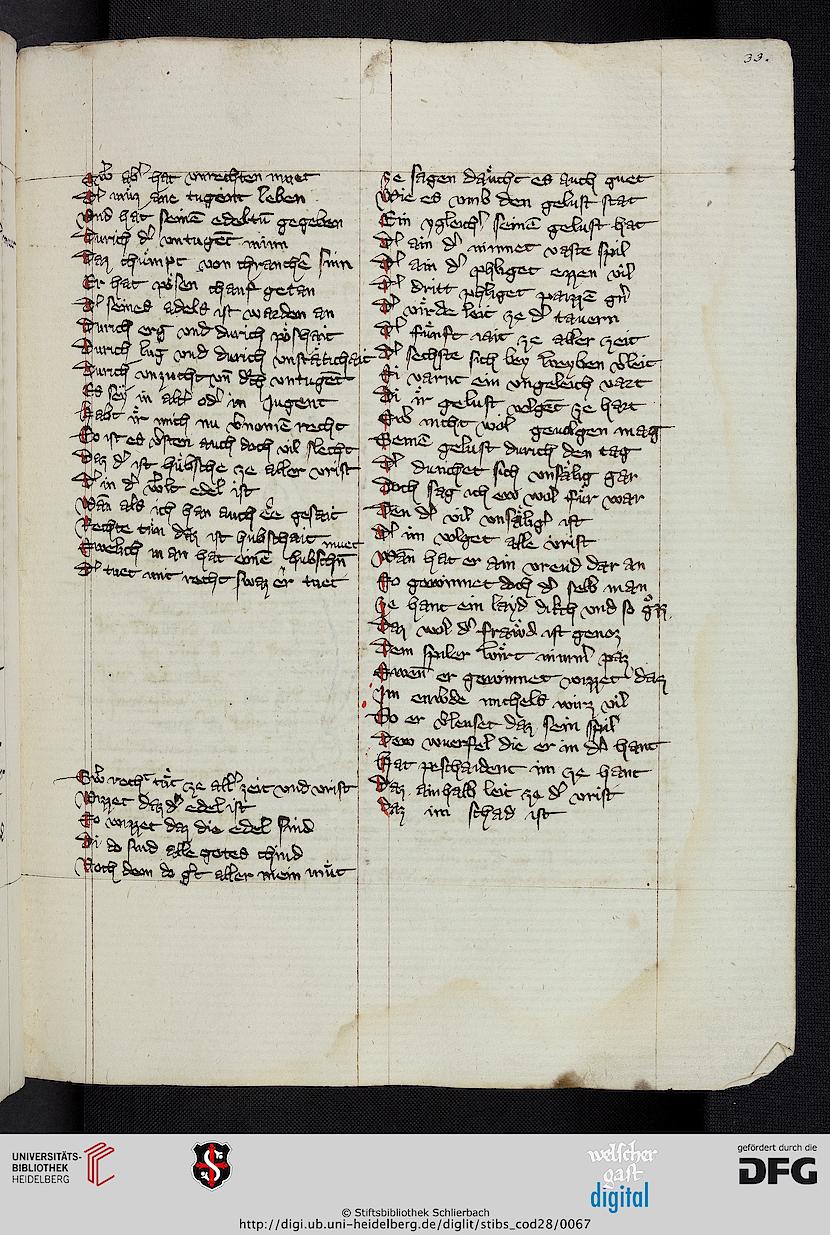 33.
Swˢ abˢ hat vnrechten muet
Dˢ muͤz ane tugent leben
Vnd hat seinē edeltū gegeben
Durich dˢ vntugēt minn
Daz chuͤmpt von chranchē sinn
Er hat poͤsen chauf getan
Dˢ seines adels ist warden an
Durich erg vnd durich poͤshait
Durich lug vnd durich vnstaͤtichait
Durich vnzucht vn̄ dˢch vntugēt
Es sey in altˢ odˢ in Jugent
Habt ir mich nu vˢnomē recht
So ist es vˢsten auch doch vil slecht
Daz dˢ ist huͤbsche ze aller vrist
Dˢ in dˢ wˢlt edel ist
Wan als ich han auch ee gesait
Rechte tun daz ist hubschait
Swelich man hat einē hubschn̄ muet
Dˢ tuet mit recht swaz er tuet
Swˢ recht tuͤt ze allˢ zeit vnd vrist
Wizzet daz dˢ edel ist
So wizzet daz die edel sind
Di do sind alle gotes chind
Noch dem do gˢt aller mein muͤt
ze sagen daͤucht es auch guet
Wie es vmb den gelust stat
Ein ygleichˢ seinē gelust hat
Dˢ ain dˢ minnet vaste spil
Dˢ ain dˢ phliget ezzen vil
Dˢ dritt phliget paizzē gˢn
Dˢ virde leit ze dˢ tauern
Dˢ fuͤnft iait ze aller zeit
Dˢ sechste sich bey weyben vˢleit
Si varnt ein vngeleich vart
Di ir gelust volgēt ze hart
Swˢ nicht wol geuolgen mag
Seinē gelust durich den tag
Dˢ dunchet sich vnsaͤlig gar
Doch sag ich ew wol fuͤr war
Den dˢ vil vnsaͤligˢ ist
Dˢ im volget alle vrist
Wan hat er ain vreud dar an
So gewinnet doch dˢ selb man
ze hant ein layd dikch vnd so gˢz
Daz wol dˢ frawd ist genoz
Dem spiler wirt nimmˢ paz
Swen̄ er gewinnet wizzet daz
Im enwˢde michels wirz vil
So er vˢleuset daz sein spil
Dew wuerfel die er in dˢ hant
Hat peschaident im ze hant
Daz ainhalb leit ze dˢ vrist
Daz im schad ist
UNIVERSITÄTS-
BIBLIOTHEK
HEIDELBERG
welscher
gast
digital
gefördert durch die
DFG
© Stiftsbibliothek Schlierbach
http://digi.ub.uni-heidelberg.de/diglit/stibs_cod28/0067